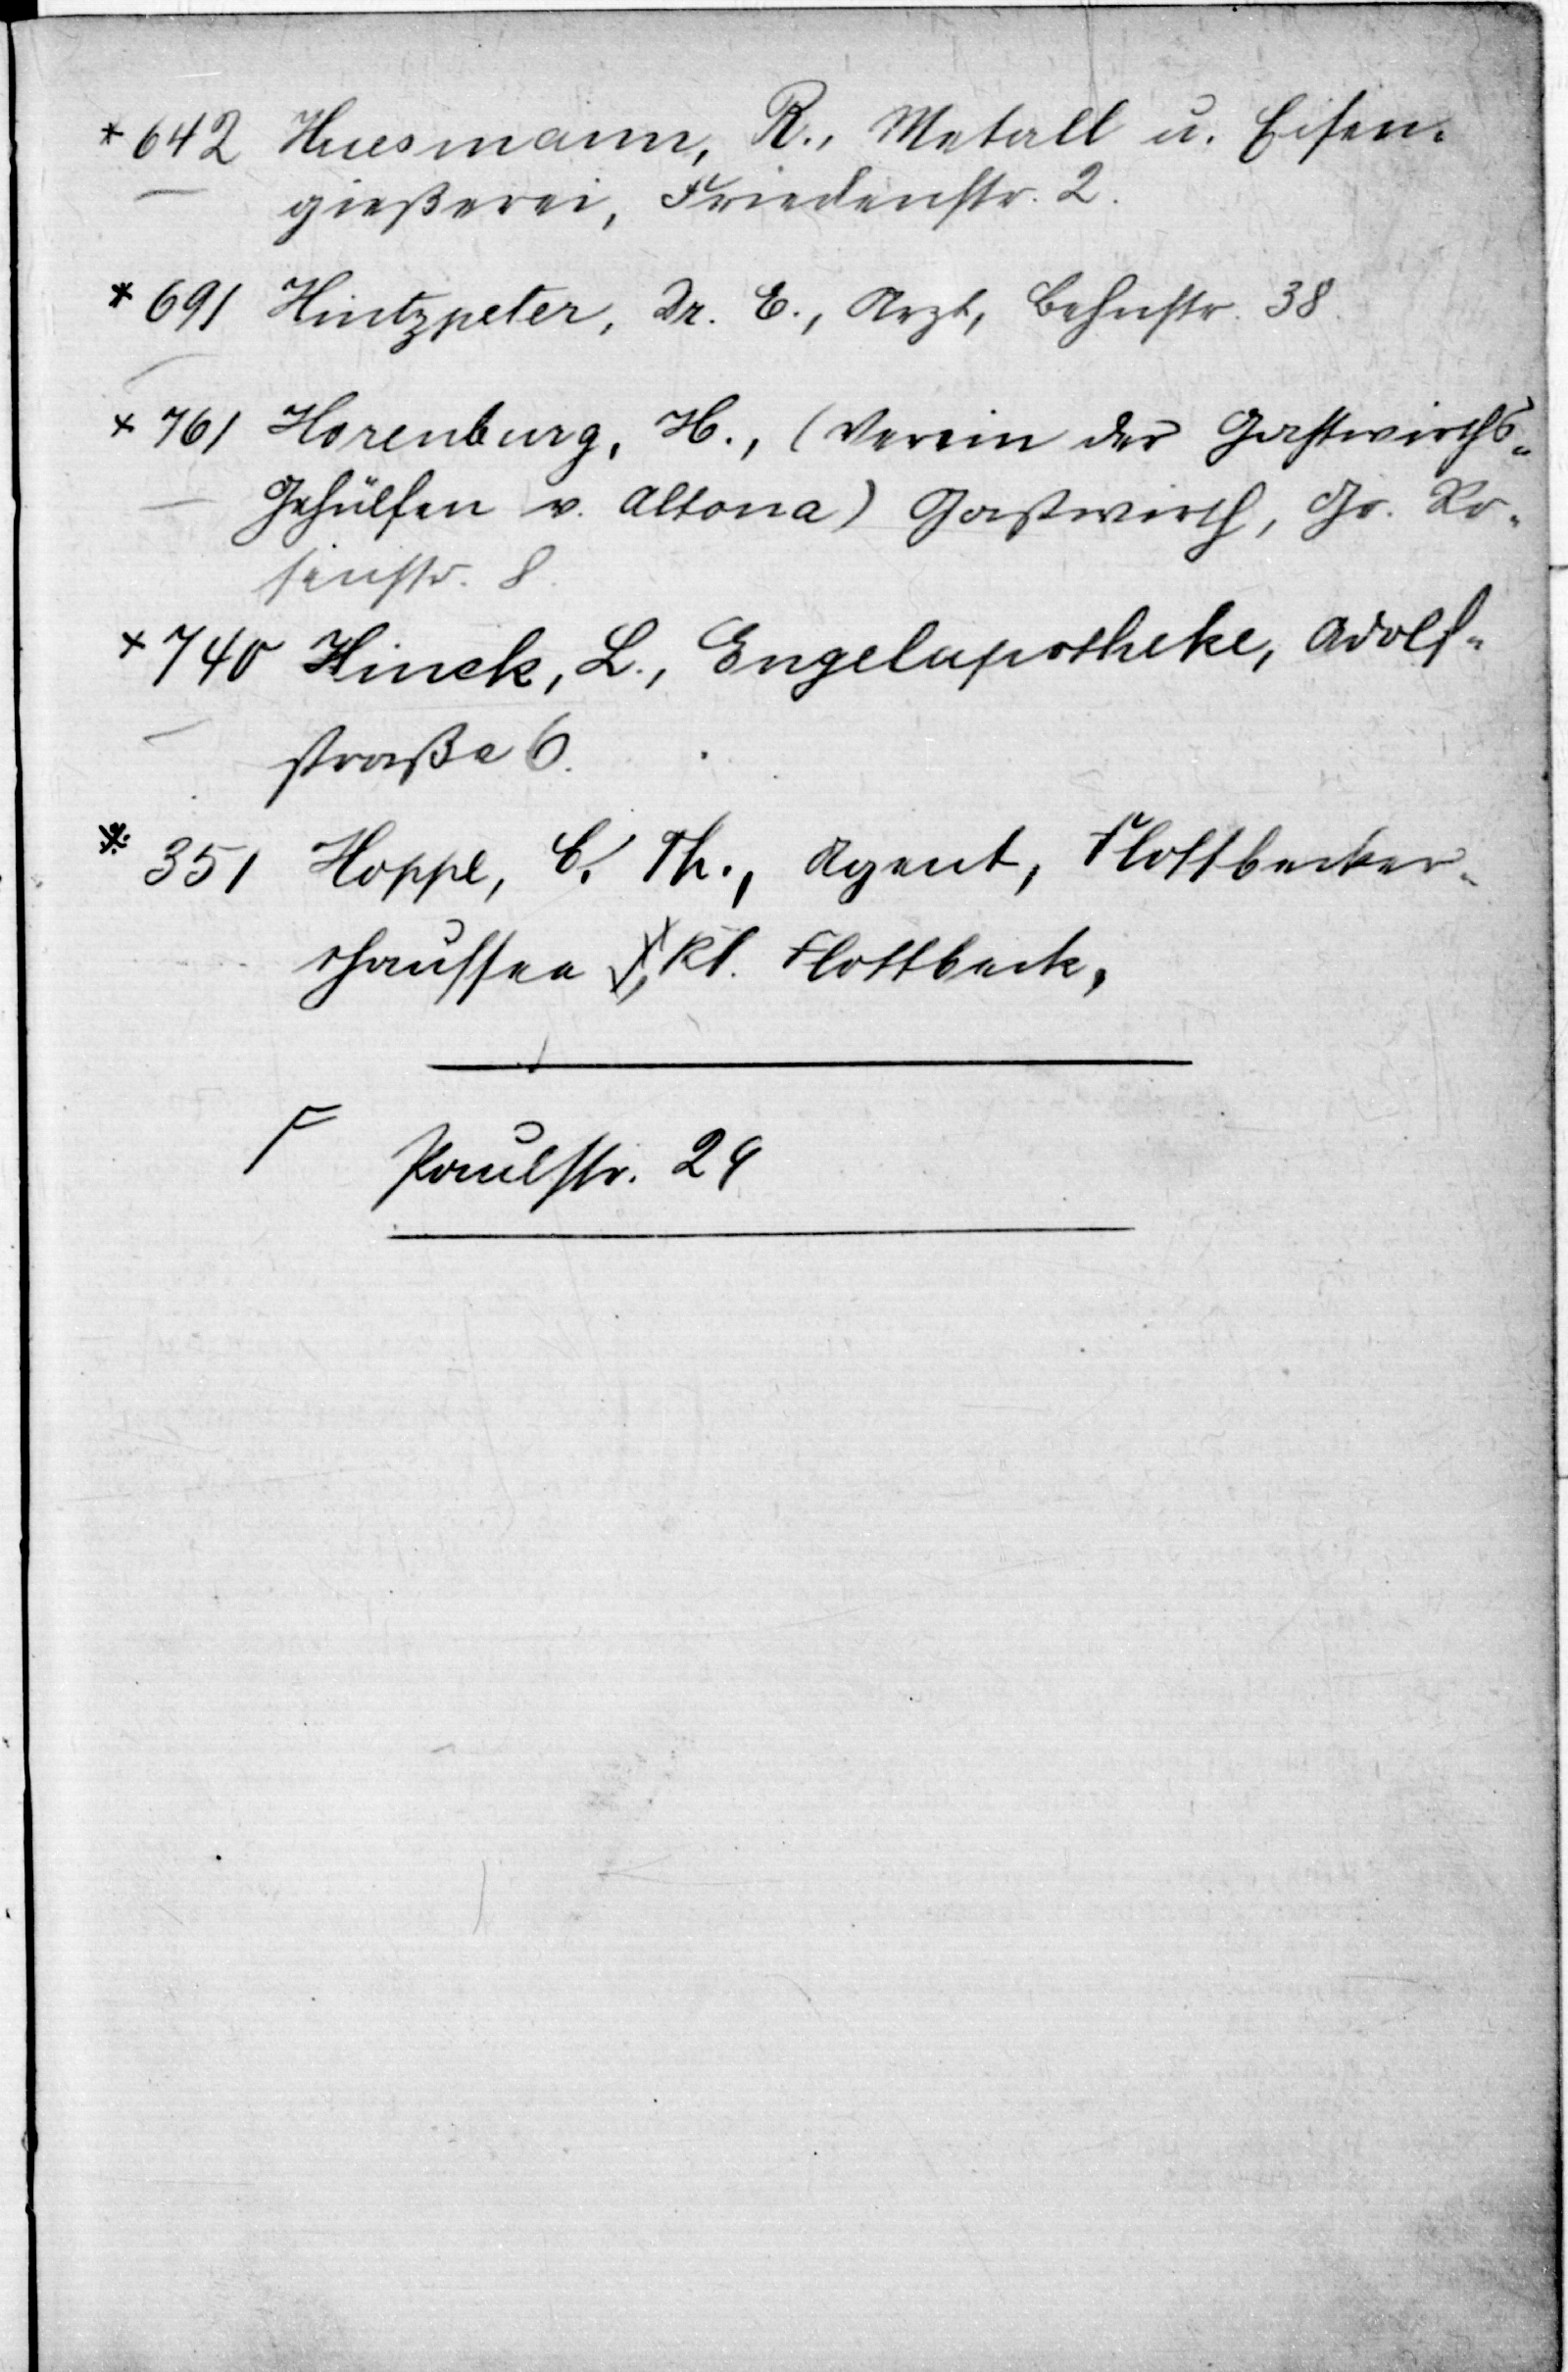 * 642 Huesmann, R., Metall u. Eisen-
gießerei, Friedenstr. 2.
* 691 Hintzpeter, Dr. E., Arzt, Behnstr. 38.
* 761 Horenburg, H., (Verein der Gastwirths-
Gehülfen v. Altona) Gastwirth, Gr. Ro-
senstr. 8.
* 740 Hinck, L., Engelapotheke, Adolf-
straße 6.
* 351 Hoppe, C. Th., Agent, Flottbecker-
chaussee Kl. Flottbeck,
Paulstr. 29